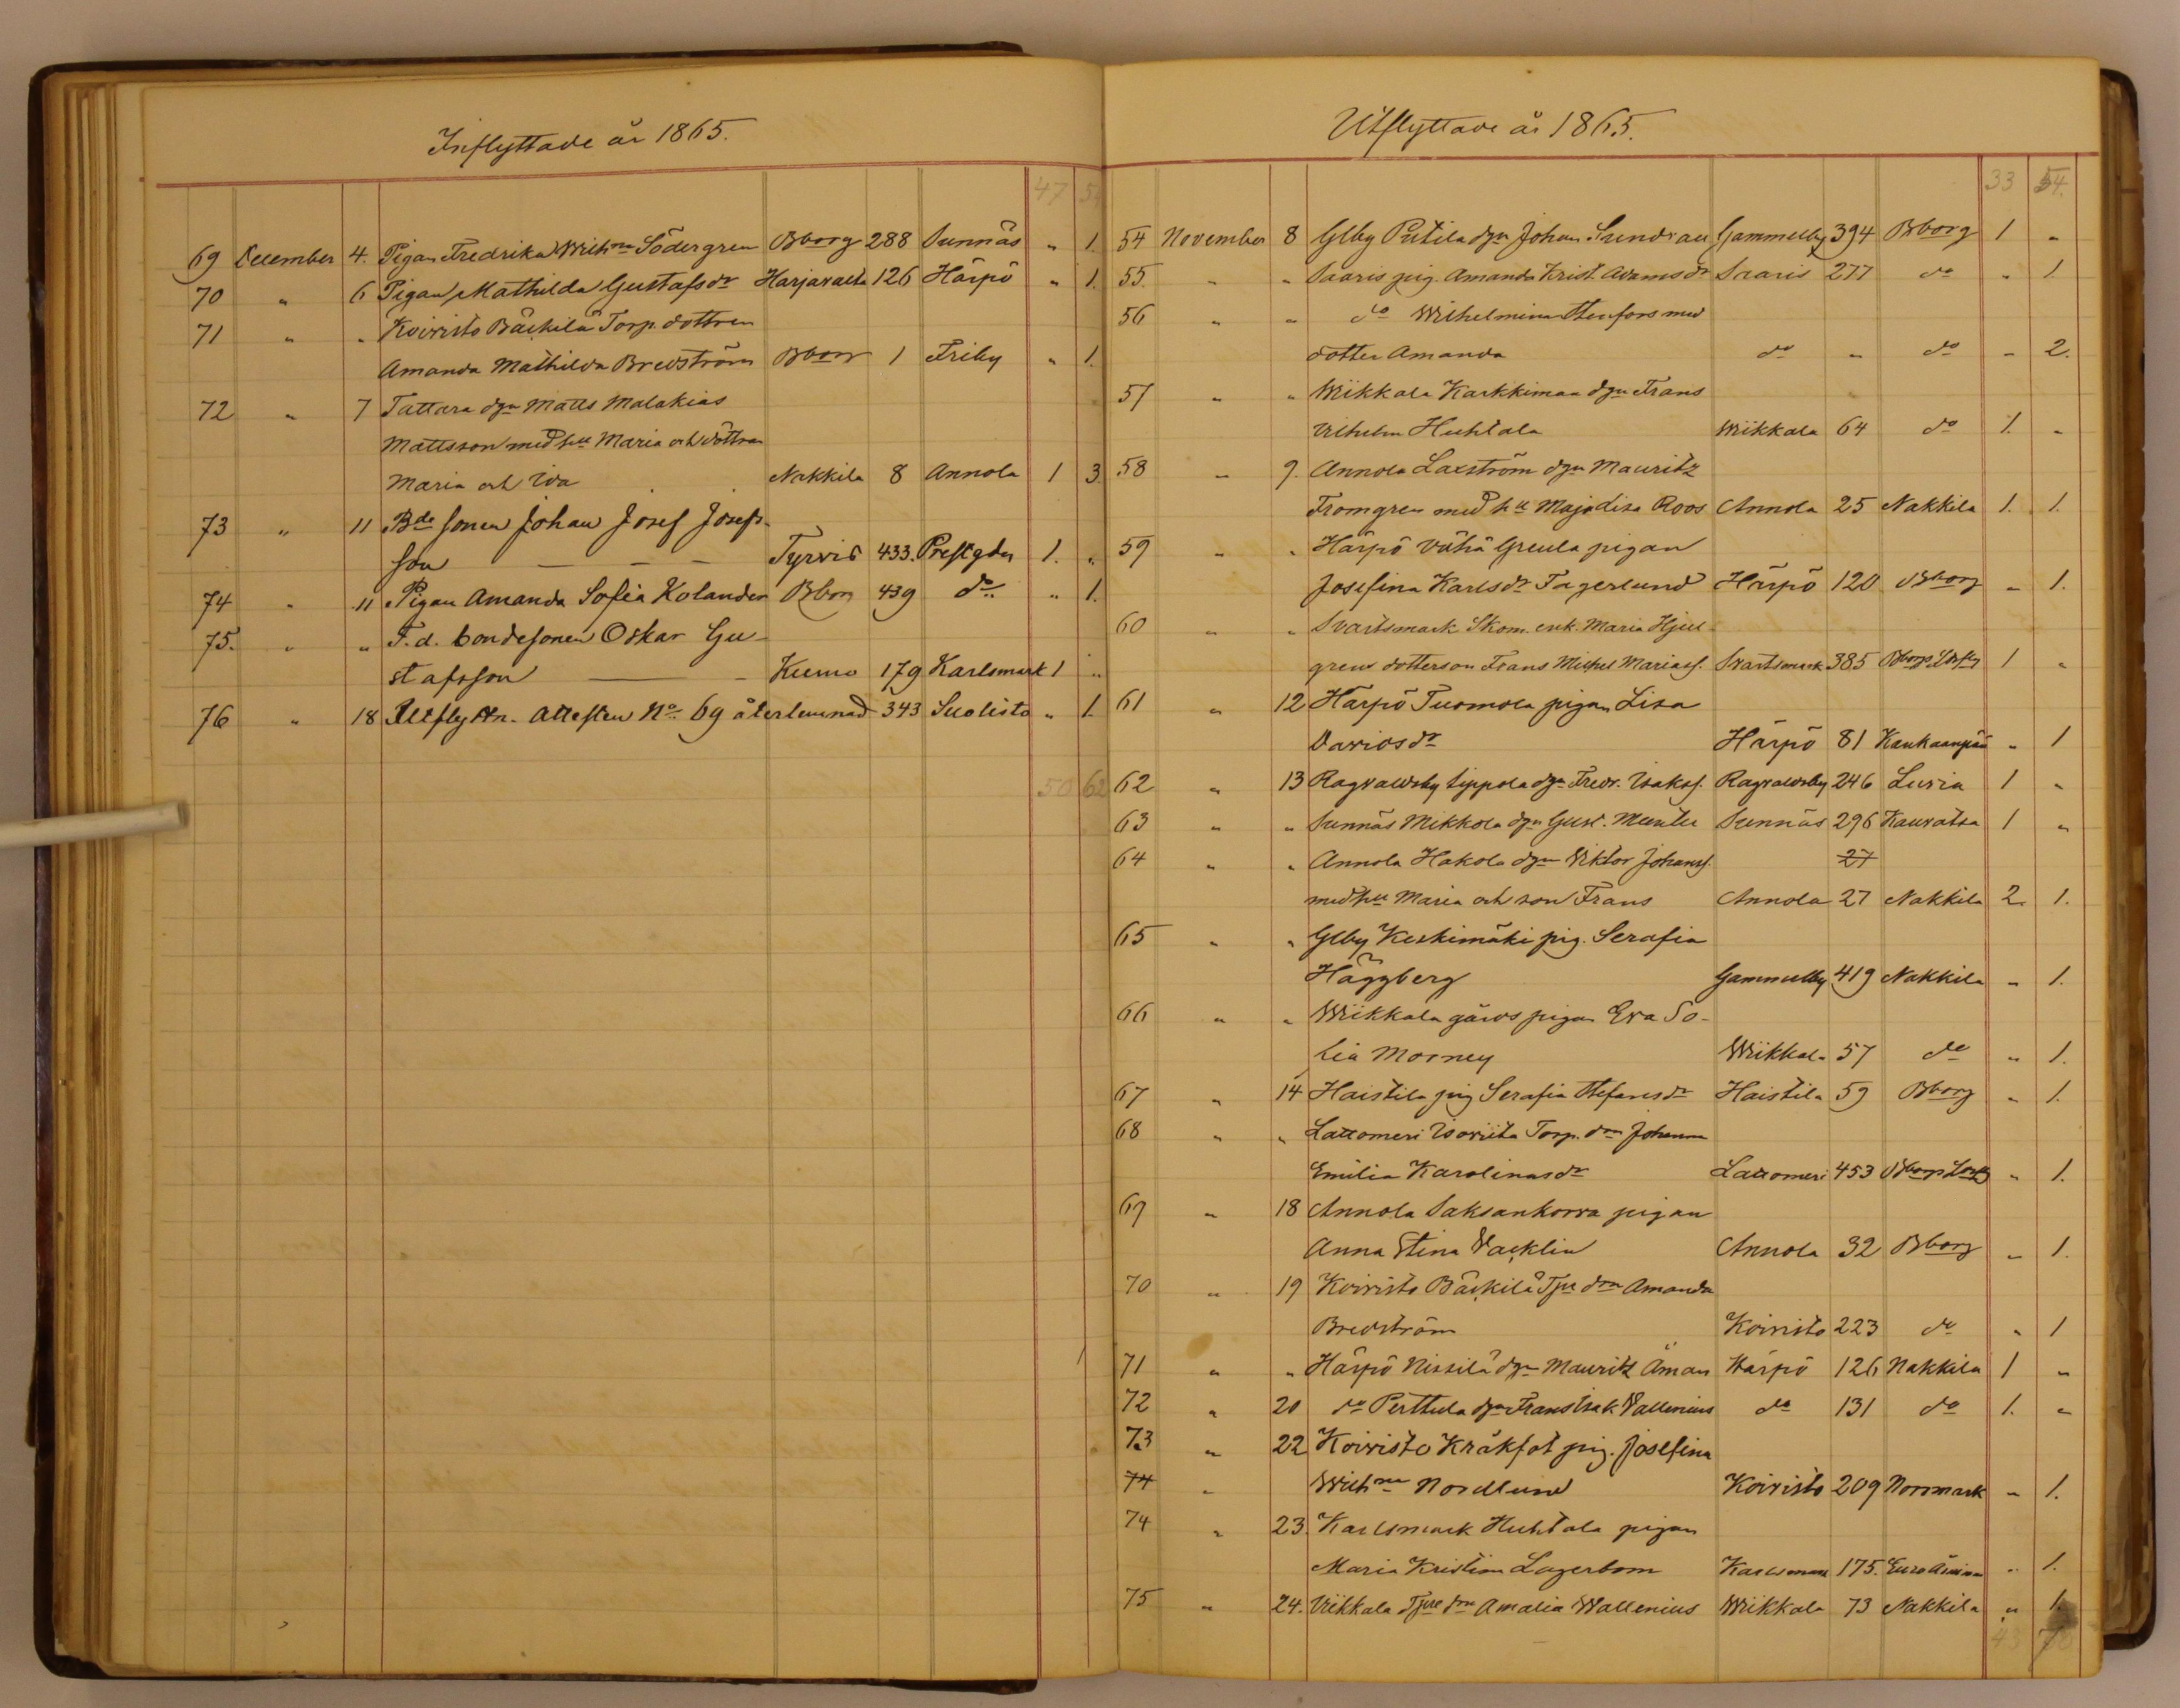 Inflyttade år 1865.
47 54
69 December 4. Pigan Fredrika Wilhna Södergren Bborg 288 Sunnäs " 1.
70 " 6 Pigan Mathilda Gustafsdr Harjavalta 126 Härpö " 1.
71 " " Koivisto Bäckilä Torp. dottren
Amanda Mathilda Bredström Bborg 1 Friby " 1.
72 " 7 Tattara dgn Matts Malakias
Mattsson med hu Maria och döttrar
Maria och Ida Nakkila 8 Annola 1 3
73 " 11 Bde sonen Johan Josef Josefs-
son — — — Tyrvis 433. Prestgdn 1. "
74 " 11 Pigan Amanda Sofia Kolander Bborg 439 do " 1.
75. " " F. d. bondesonen Oskar Gu-
stafsson — — Kumo 179 Karlsmark 1 "
76 " 18 Utflyttn. attesten No 69 återlemnad 343 Suolisto " 1
50 62
Utflyttade år 1865.
33 54.
54 November 8 Glby Putila dgn Johan Sundvall Gammelby 394 Bborg 1 "
55. " " Saaris pig. Amanda Krist. Adamsdr Saaris 277 do " 1.
56 " " do Wilhelmina Stenfors med
dotter Amanda do " do " 2.
57 " " Wiikkala Karkkiman dgn Frans
Vilhelm Huhtala Wiikkala 64 do 1. "
58 " 9. Annola Laxström dgn Mauritz
Fromgren med hu Maja Lisa Roos Annola 25 Nakkila 1. 1.
59 " " Härpö Vähä Greula pigan
Josefina Karlsdr Fagerlund Härpö 120 Bborg " 1.
60 " " Svartsmark Skom. enk. Maria Hjul
grens dotterson Frans Michel Mariass. Svartsmark 385 Bborgs Ldsfg 1 "
61 " 12 Härpö Tuomola pigan Lisa
Davidsdr Härpö 81 Kankaanpää " 1
62 " 13 Ragvaldsby Sippola dgn Fredr. Isakss. Ragvaldsby 246 Luvia 1 "
63 " " Sunnäs Mikkola dgn Gust. Muntu Sunnäs 296 Kauvatsa 1 "
64 " " Annola Hakola dgn Viktor Johanss. 27
med hu Maria och son Frans Annola 27 Nakkila 2. 1.
65 " " Glby Keskimäki pig. Serafia
Häggberg Gammelby 419 Nakkila " 1.
66 " " Wiikkala gårds pigan Eva So-
fia Morney Wiikkala 57 do " 1.
67 " 14 Haistila pig Serafia Stefansdr Haistila 59 Bborg " 1.
68 " " Lattomeri Isoviita Torp. drn Johanna
Emilia Karolinasdr Lattomeri 453 Bborgs Ldsfg " 1.
69 " 18 Annola Saksankorva pigan
Anna Stina Vacklin Annola 32 Bborg " 1.
70 " 19 Koivisto Bäckilä Tpr drn Amanda
Bredström Koivisto 223 do " 1
71 " " Härpö Nissilä dgn Mauritz Åman Härpö 126 Nakkila 1 "
72 " 20 do Perttula dgn Frans Isak Vallenius do 131 do 1. "
73 " 22 Koivisto Kråkfot pig. Josefina
74 " Wilhna Nordlund Koivisto 209 Norrmark " 1.
74 " 23. Karlsmark Huhtala pigan
Maria Kristina Lagerbom Karlsmark 175. Eura Åminne " 1.
75 " 24. Viikkala Tpr drn Amalia Wallenius Wiikkala 73 Nakkila " 1.
43 70